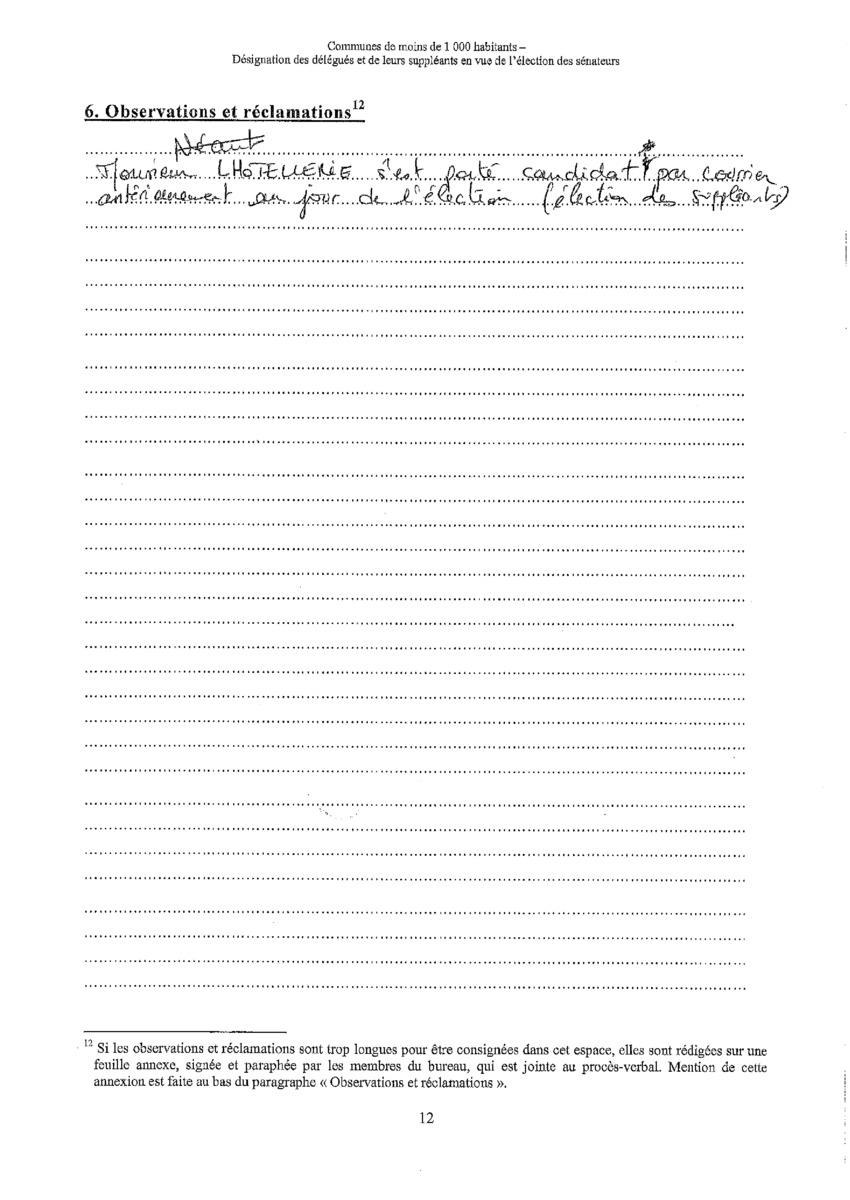 Communes de moins de 1 000 habitants –
Désignation des délégués et de leurs suppléants en vue de l'élection des sénateurs
6. Observations et réclamations12
Néant
Monsieur LHOTELLERIE s'est porté candidat par courrier
antérieurement au jour de l'élection (élection des suppléants)
12 Si les observations et réclamations sont trop longues pour être consignées dans cet espace, elles sont rédigées sur une
feuille annexe, signée et paraphée par les membres du bureau, qui est jointe au procès-verbal. Mention de cette
annexion est faite au bas du paragraphe « Observations et réclamations ».
12